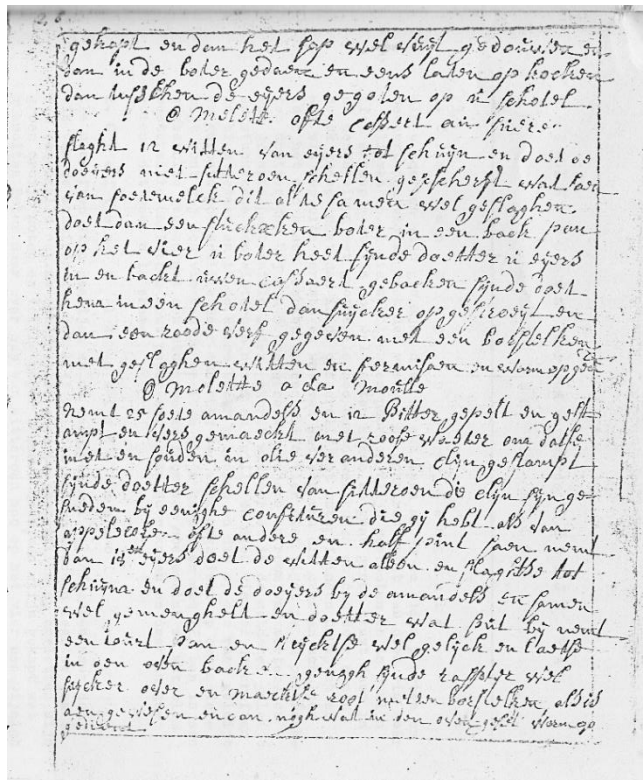 gekapt en dan het sop wel uijt gedouwen en
dan in de boter gedaen en eens laten op kocken
dan tusschen de eijers gegoten op u schotel
@ Molette ofte cassert au suere
slaght 12 witten van eijers tot schuijm en doet de
doeijers met sitteroen schellen gescherft wat saen
van soetemelck dit al te samen wel geslaghen
doet dan een stucxken boter in een back pan
op het vier u boter heet sijnde doetter u eijers
in en backt uwen cassaert gebacken sijnde doet
hem in een schotel dan suijcker op gestroeijt en
dan een roode verf gegeven met een borstelken
met geslaghen witten en fermisaen en warm opgen
@ Molette a la moulle
Nemt 25 soete amandels en 12 Bitter gepelt en gest
ampt en vers gemaeckt met roose waeter om datse
niet en souden in olie veranderen clijn gestampt
sijnde doetter schellen van sitteroen die clijn sijn ge
sneden by eenighe confituren die gij hebt als van
appelecose ofte andere en half pint saen nemt
dan eijers doet de witten alleen en slaghtse tot
schuijm en doet de doeijers by de amandels te samen
wel gemenghelt en doetter wat sut by nemt
een tourt pan en strijcktse wel gelijck en laetse
in den oven backen genogh sijnde raspter wel
suijcker over en maecktse root met een borstelken als is
aen gewesen en can nogh wat in den oven geset warm op
gedient